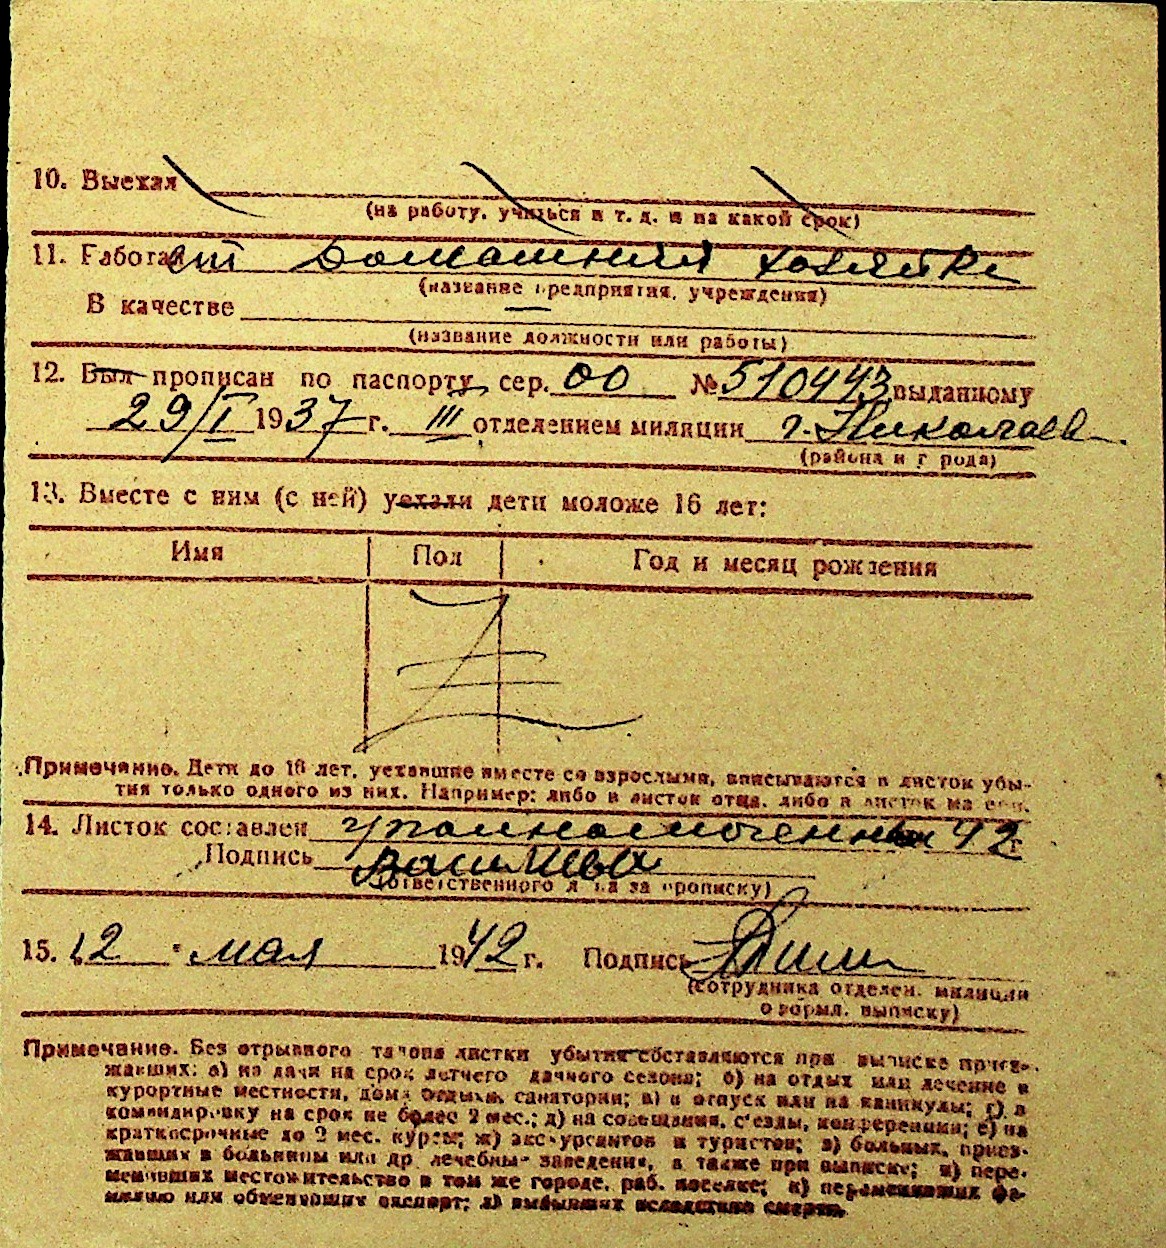 10. Выехал
(на работу, учиться и т. д. и на какой срок)
11. Работает Домашний хозяйке
(название предприятия, учреждения)
В качестве —
(название должности или работы)
12. Был прописан по паспорту сер. 00 № 510443 выданному
29/I 1937 г. III отделением милиции г. Николаев
(района и города)
13. Вместе с ним (с ней) уехали дети моложе 16 лет:
Имя Пол Год и месяц рождения
Z
Примечание. Дети до 16 лет, уехавшие вместе со взрослыми, вписываются в листок убы-
тия только одного из них. Например: либо в листок отца, либо в листок матери.
14. Листок составлен 42 г
Подпись
(ответственного лица за прописку)
15. 12 " мая 1942 г. Подпись
(сотрудника отделен. милиции
оформл. выписку)
Примечание. Без отрывного талона листки убытия составляются при выписке приез-
жавших: а) на дачи на срок летнего дачного сезона; б) на отдых или лечение в
курортные местности, дома отдыха, санатории; в) в отпуск или на каникулы; г) в
командировку на срок не более 2 мес.; д) на совещания, с'езды, конференции; е) на
краткосрочные до 2 мес. курсы; ж) экскурсантов и туристов; з) больных, приез-
жавших в больницы или др. лечебные заведения, а также при выписке: и) пере-
менивших местожительство в том же городе, раб. поселке; к) переменивших фа-
милию или обменявших паспорт; л) выбывших вследствие смерти.